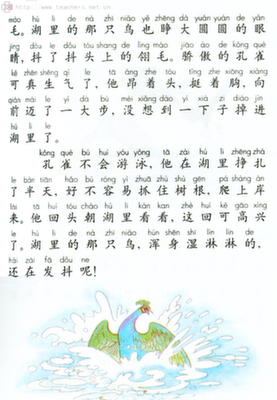 http://www.teachers.net.cn
máo hú li de nà zhī niǎo yě zhēng dà yuán yuán de yǎn
毛。湖里的那只鸟也睁大圆圆的眼
jīng dǒu le dǒu tóu shang de líng máo jiāo ào de kǒng què
睛，抖了抖头上的翎毛。骄傲的孔雀
kě zhēn shēng qì le tā áng zhe tóu tǐng zhe xiōng xiàng
可真生气了，他昂着头，挺着胸，向
qián mài le yí dà bù méi xiǎng dào yí xià zi diào jìn
前迈了一大步，没想到一下子掉进
hú li le
湖里了。
kǒng què bú huì yóu yǒng tā zài hú li zhēng zhá
孔雀不会游泳，他在湖里挣扎
le bàn tiān hǎo bù róng yì zhuā zhù shù gēn pá shàng àn
了半天，好不容易抓住树根，爬上岸
lái tā huí tóu cháo hú li kàn kan zhè huí kě gāo xìng
来。他回头朝湖里看看，这回可高兴
le hú li de nà zhī niǎo hún shēn shī lín lín de
了。湖里的那只鸟，浑身湿淋淋的，
hái zài fā dǒu ne
还在发抖呢！